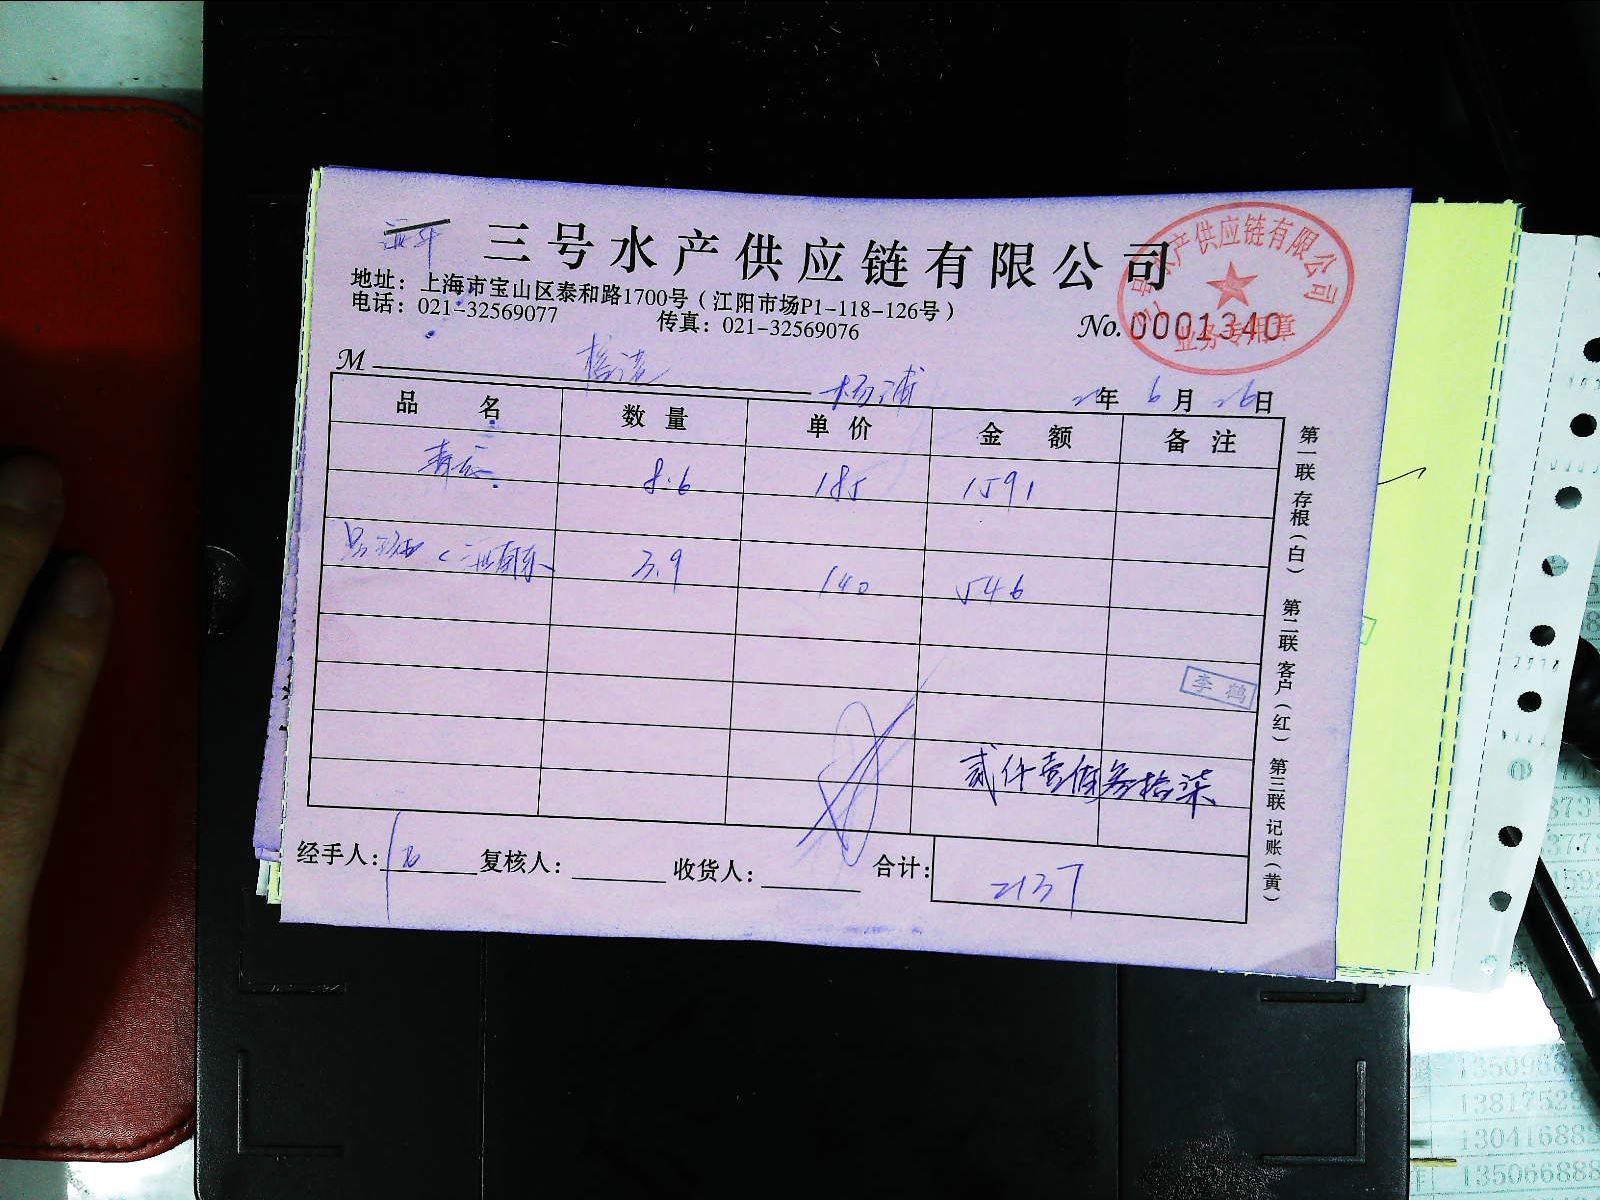 三号水产供应链有限公司
地址：上海市宝山区泰和路1700号（江阳市场P1-118-126号）
电话：021-32569077 传真：021-32569076
No. 0001340
水产供应链有限公司
业务专用章
M 杨浦 年 6 月 26 日
品名 数量 单价 金额 备注
8.6 185 1591
3.9 140 546
李鹤
贰仟壹佰叁拾柒
经手人： 复核人： 收货人： 合计： 2137
第一联 存根（白） 第二联 客户（红） 第三联 记账（黄）